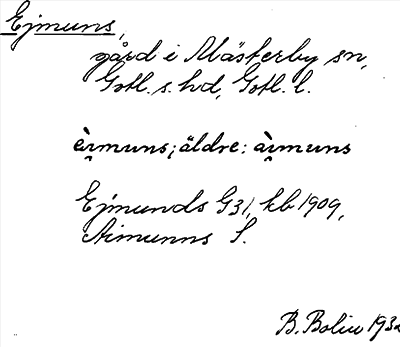 Ejmuns,
gård i Mästerby sn,
Gotl. s. hd, Gotl. l.
èi̯muns; äldre: ài̯muns
Ejmunds G31, kb 1909,
Aimunns S.
B. Bolin 193